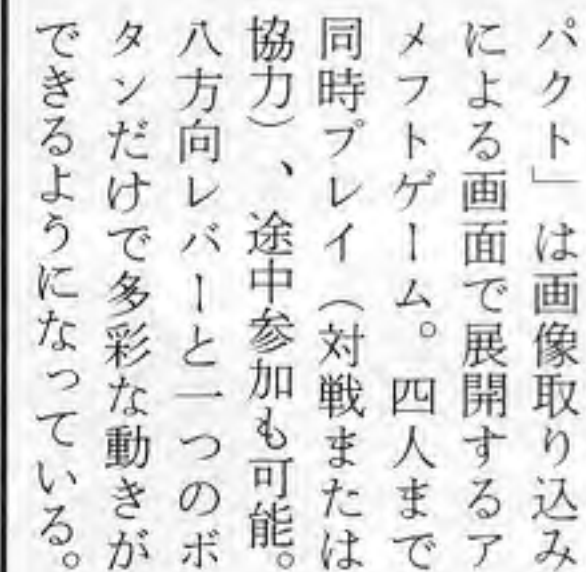 パクト」は画像取り込み
による画面で展開するア
メフトゲーム。四人まで
同時プレイ（対戦または
協力）、途中参加も可能。
八方向レバーと一つのボ
タンだけで多彩な動きが
できるようになっている。